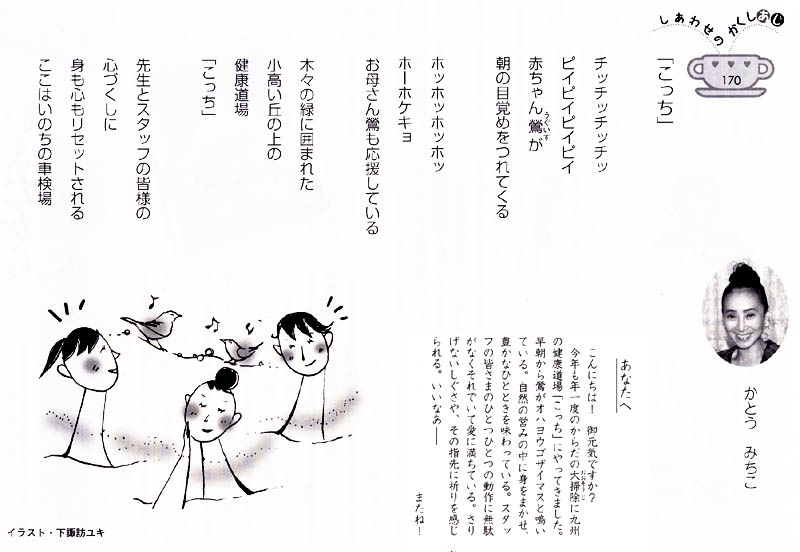 しあわせのかくしあじ
170
「こっち」
かとう みちこ
チッチッチッチッ
ピイピイピイピイ
赤ちゃん鶯が
うぐいす
朝の目覚めをつれてくる
ホッホッホッホッ
ホーホケキョ
お母さん鶯も応援している
木々の緑に囲まれた
小高い丘の上の
健康道場
「こっち」
先生とスタッフの皆様の
心づくしに
身も心もリセットされる
ここはいのちの車検場
あなたへ
こんにちは! 御元気ですか?
今年も年一度のからだの大掃除に九州
の健康道場「こっち」にやってきました。
早朝から鶯がオハヨウゴザイマスと鳴い
ている。自然の営みの中に身をまかせ、
豊かなひとときを味わっている。スタッ
フの皆さまのひとつひとつの動作に無駄
がなくそれでいて愛に満ちている。さり
げないしぐさや、その指先に祈りを感じ
られる。いいなあ──
またね!
イラスト・下諏訪ユキ